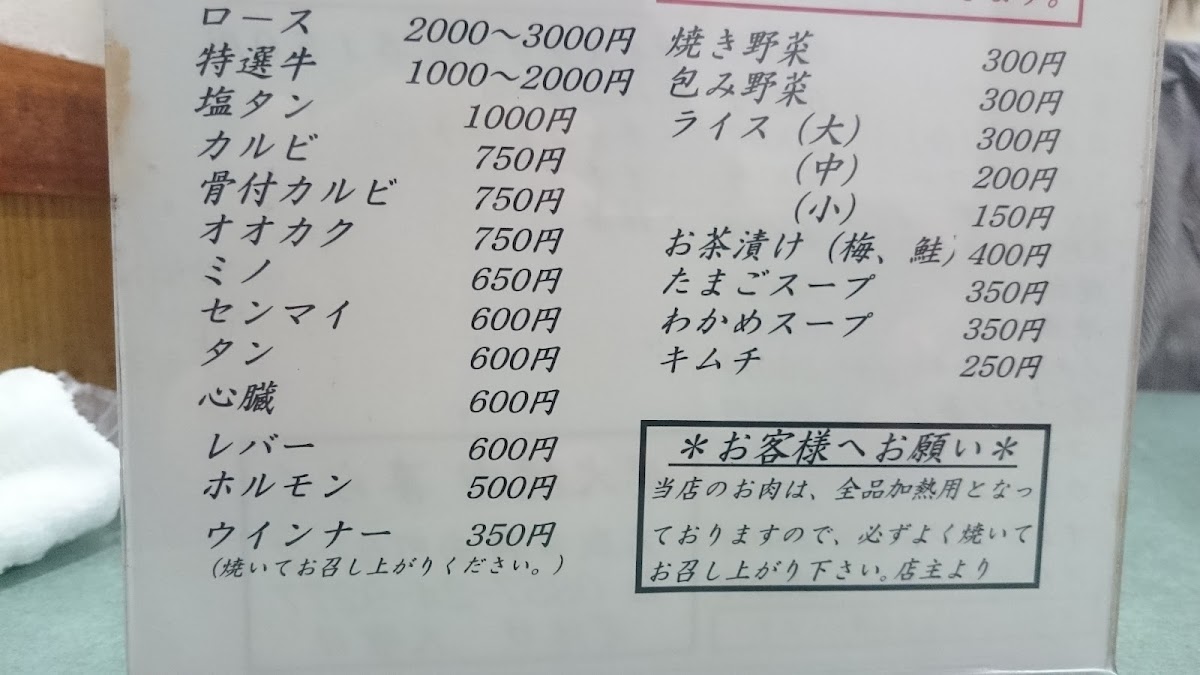 ロース 2000～3000円
特選牛 1000～2000円
塩タン 1000円
カルビ 750円
骨付カルビ 750円
オオカク 750円
ミノ 650円
センマイ 600円
タン 600円
心臓 600円
レバー 600円
ホルモン 500円
ウインナー 350円
(焼いてお召し上がりください。)
焼き野菜 300円
包み野菜 300円
ライス (大) 300円
(中) 200円
(小) 150円
お茶漬け (梅、鮭) 400円
たまごスープ 350円
わかめスープ 350円
キムチ 250円
＊お客様へお願い＊
当店のお肉は、全品加熱用となっ
ておりますので、必ずよく焼いて
お召し上がり下さい。店主より